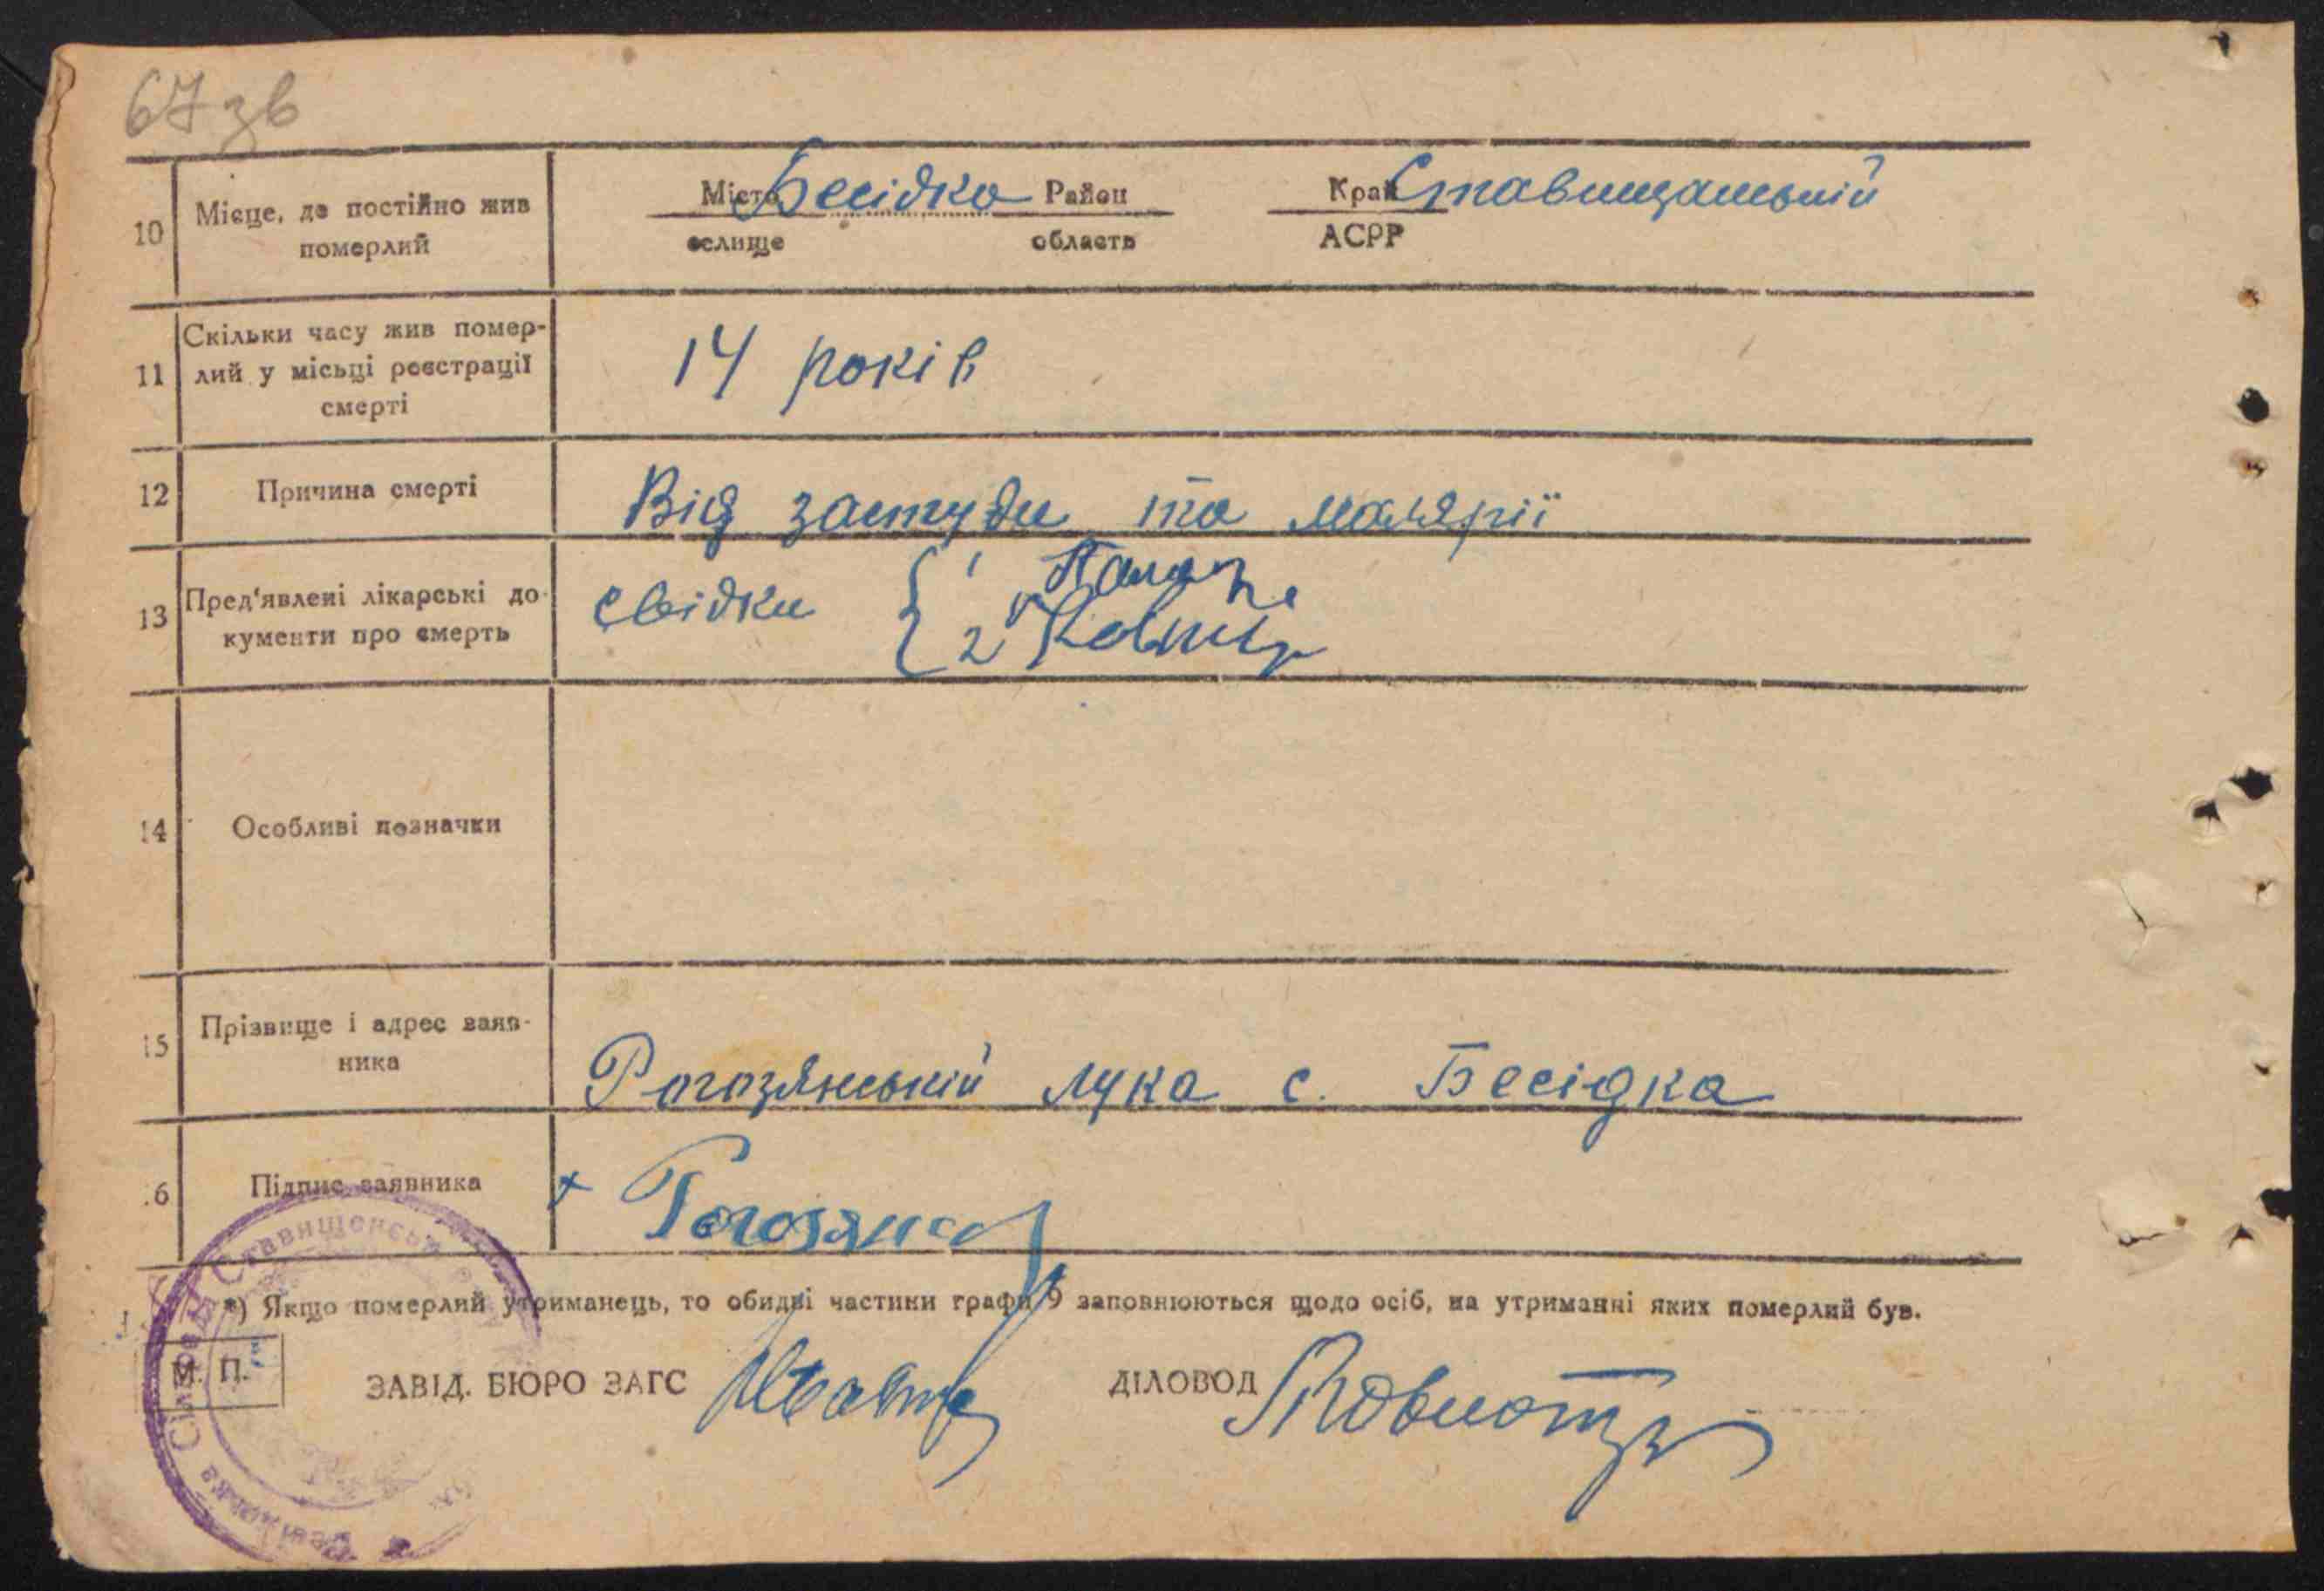 67 зв
10 Місце, де постійно жив Місто Бесідка Район Край Ставищанський
померлий селище область АСРР
11 Скільки часу жив помер-
лий у місьці реєстрації 14 років
смерті
12 Причина смерті Від застуди та малярії
13 Пред'явлені лікарські до- свідки { 1
кументи про смерть 2
14 Особливі позначки
15 Прізвище і адрес заяв-
ника Рогозянський Лука с. Бесідка
16 Підпис заявника
*) Якщо померлий утриманець, то обидві частини графи 9 заповнюються щодо осіб, на утриманні яких померлий був.
М. П. ЗАВІД. БЮРО ЗАГС ДІЛОВОД